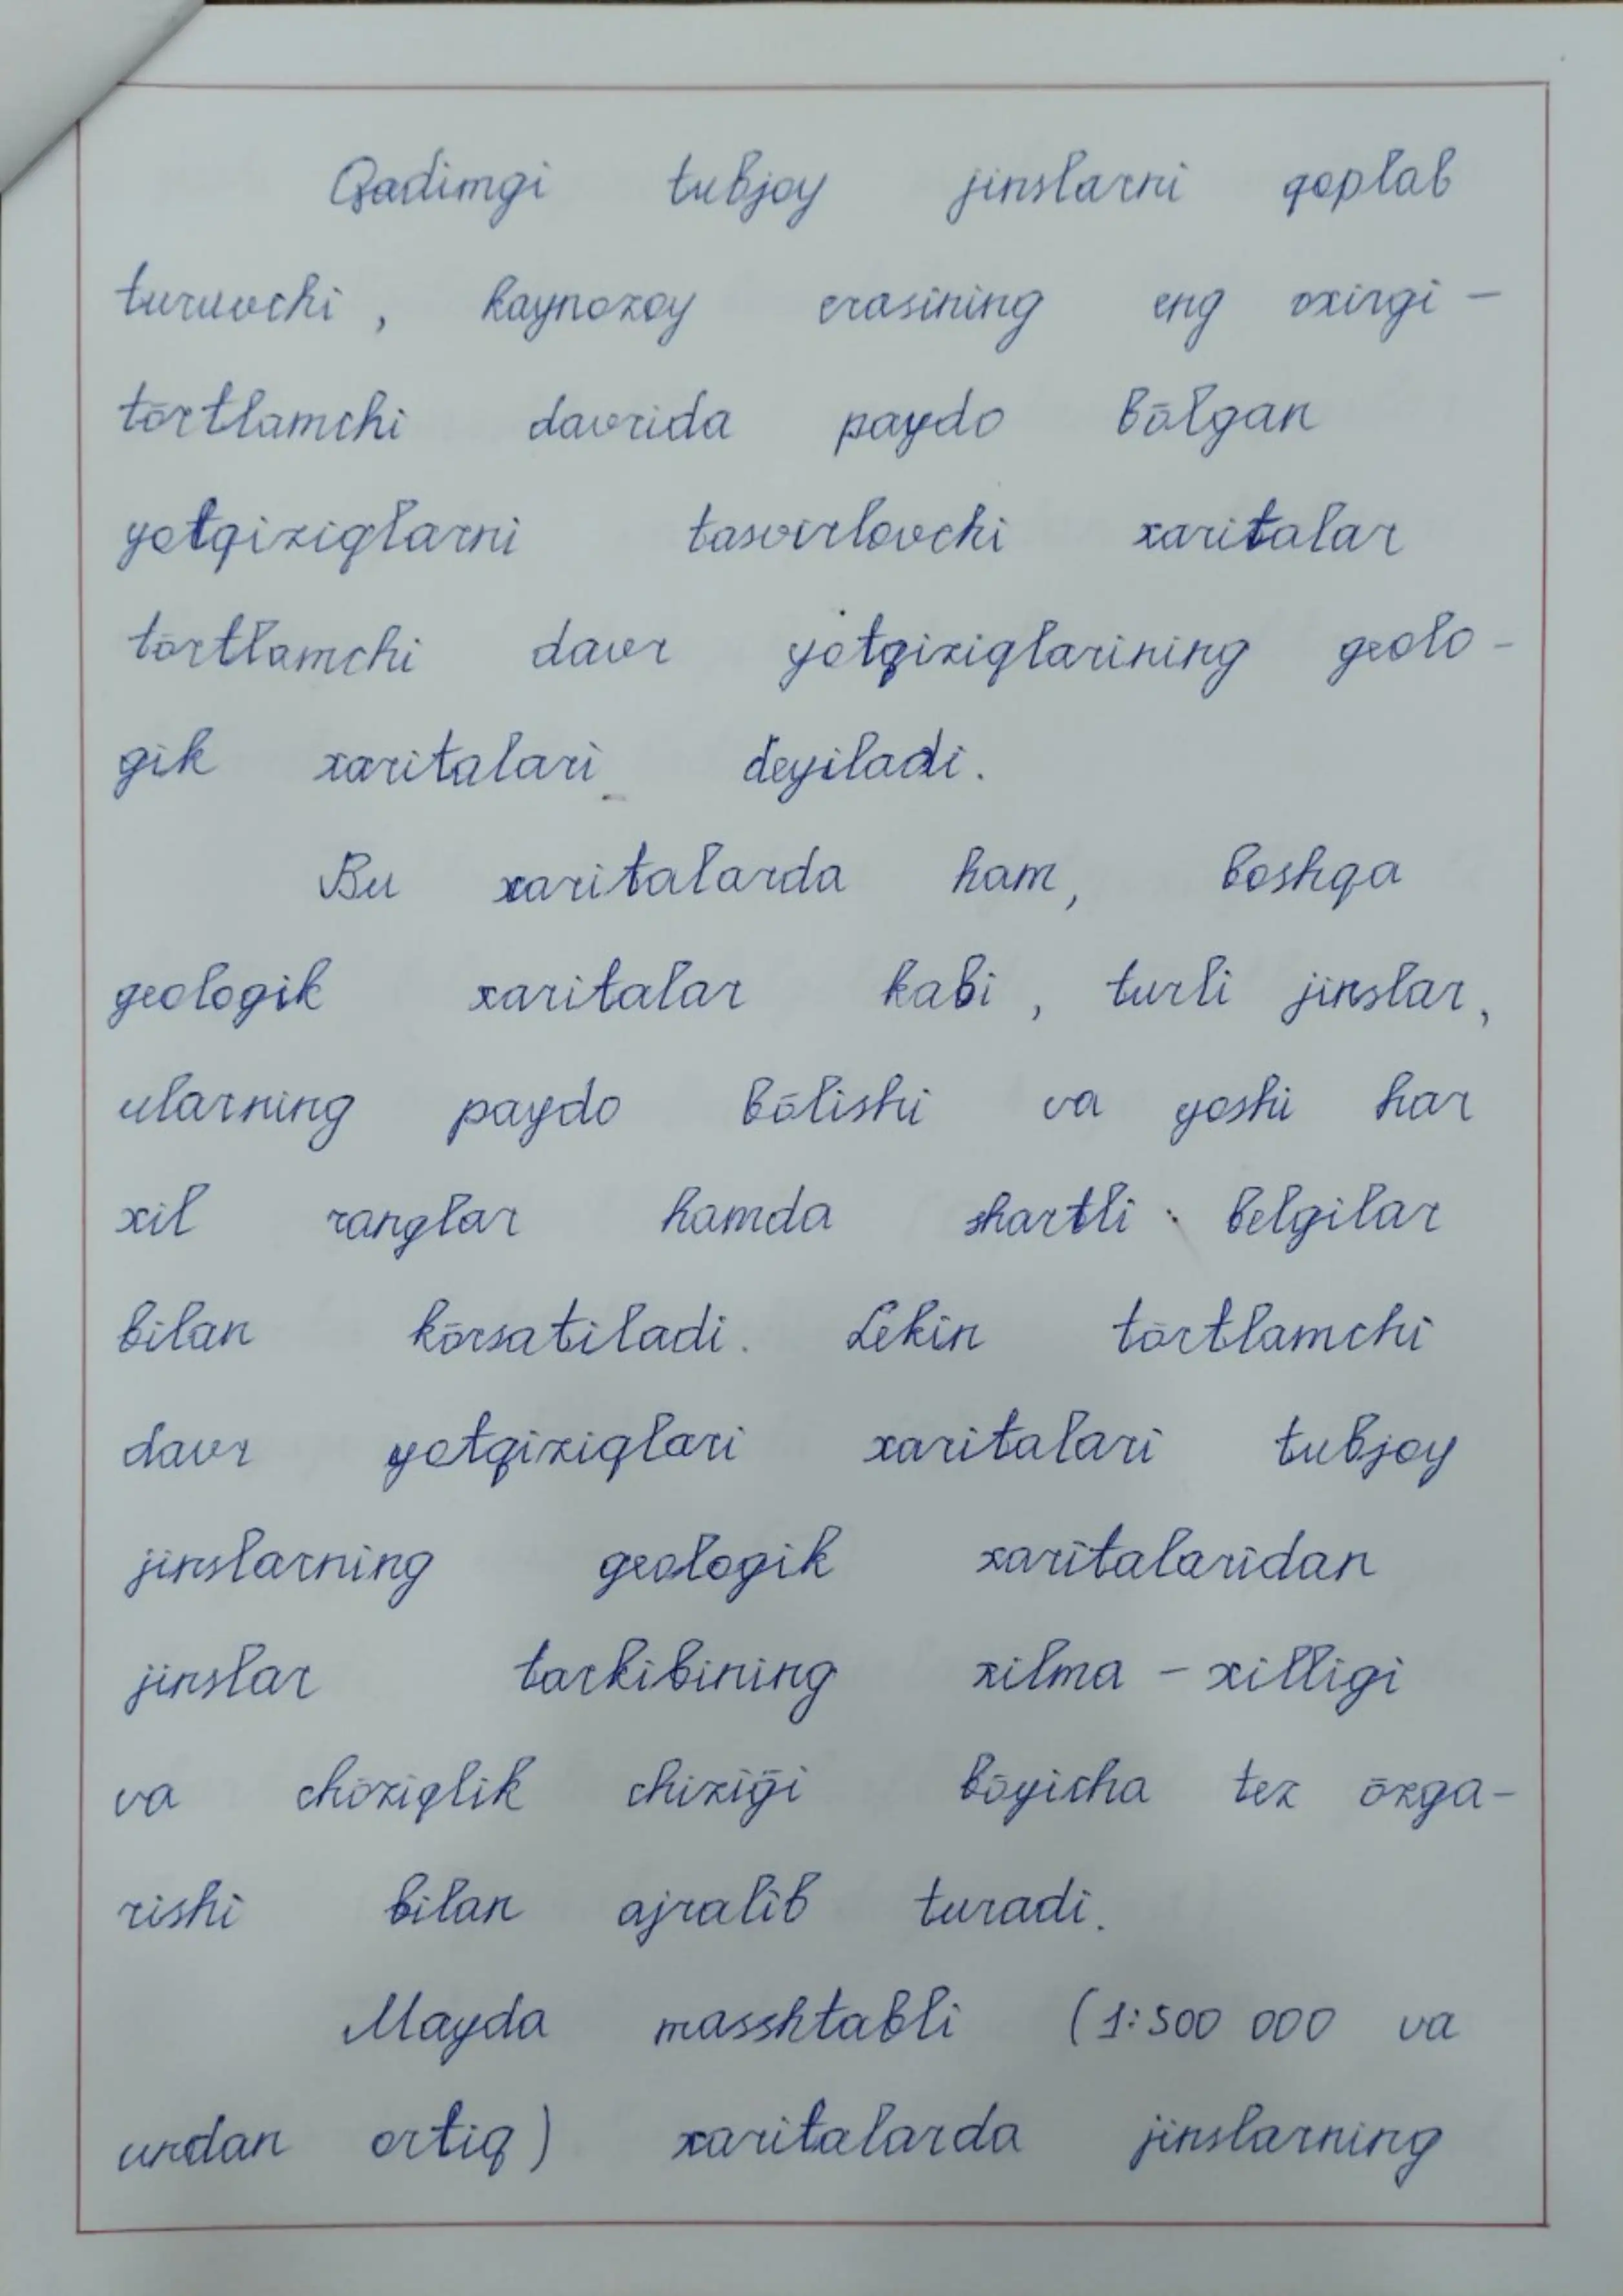 Qadimgi tubjoy jinslarni qoplab
turuvchi, kaynozoy erasining eng oxirgi –
tōrtlamchi davrida paydo bōlgan
yotqiziqlarni tasvirlovchi xaritalar
tōrtlamchi davr yotqiziqlarining geolo-
gik xaritalari deyiladi.
Bu xaritalarda ham, boshqa
geologik xaritalar kabi, turli jinslar,
ularning paydo bōlishi va yoshi har
xil ranglar hamda shartli belgilar
bilan kōrsatiladi. Lekin tōrtlamchi
davr yotqiziqlari xaritalari tubjoy
jinslarning geologik xaritalaridan
jinslar tarkibining xilma-xilligi
va chōziqlik chiziḡi bōyicha tez ōzga-
rishi bilan ajralib turadi.
Mayda masshtabli (1:500 000 va
undan ortiq) xaritalarda jinslarning